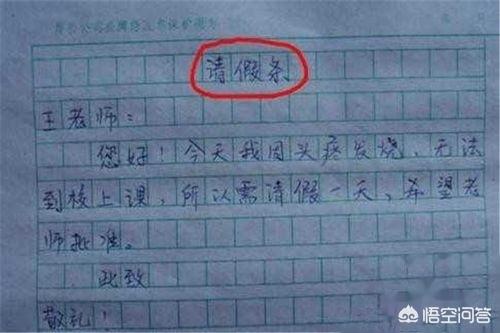 请假条
王老师：
您好！今天我因头疼发烧、无法
到校上课，所以需请假一天、希望老
师批准。
此致
敬礼！
悟空问答